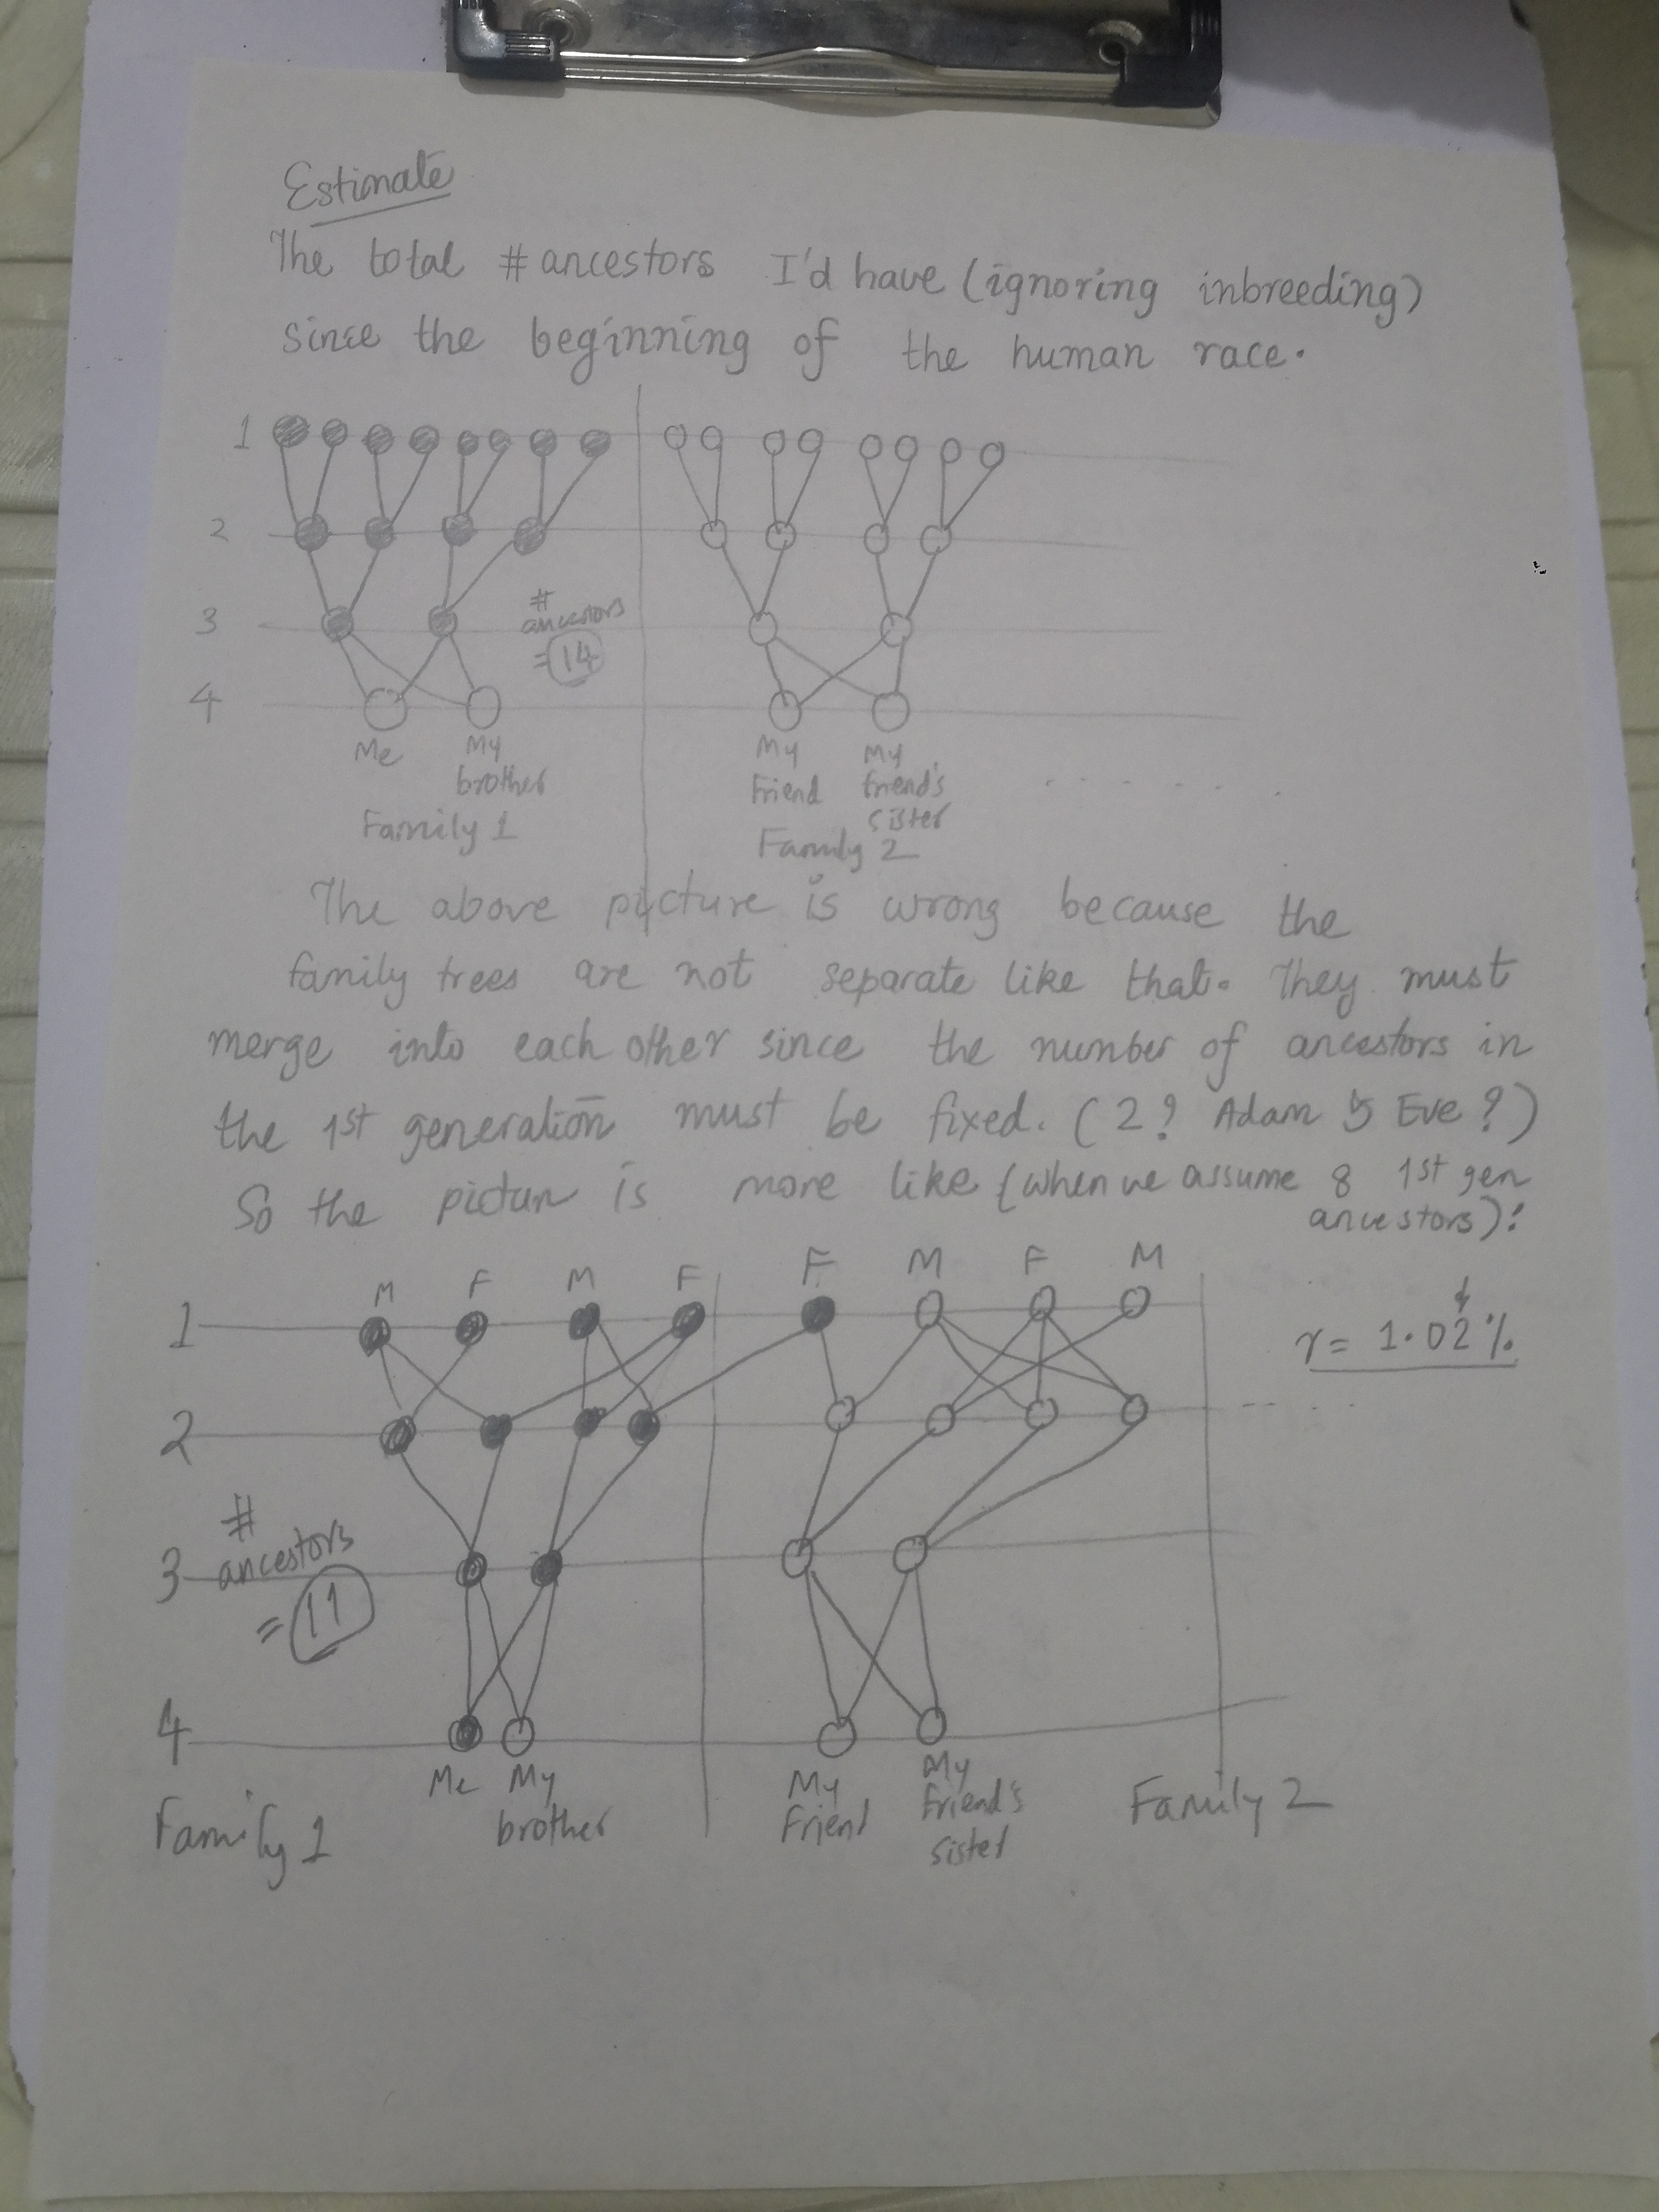 Estimate
The total # ancestors I'd have (ignoring inbreeding)
since the beginning of the human race.
1
2
3
#
ancestors
= 14
4
Me
My
brother
Family 1
My
Friend
My
friend's
sister
Family 2
The above picture is wrong because the
family trees are not separate like that. They must
merge into each other since the number of ancestors in
the 1st generation must be fixed. (2? Adam & Eve?)
So the picture is more like (when we assume 8 1st gen
ancestors):
M F M F F M F M
1
r = 1.02%
2
#
ancestors
3
= 11
4
Me
My
brother
Family 1
My
Friend
My
Friend's
sister
Family 2